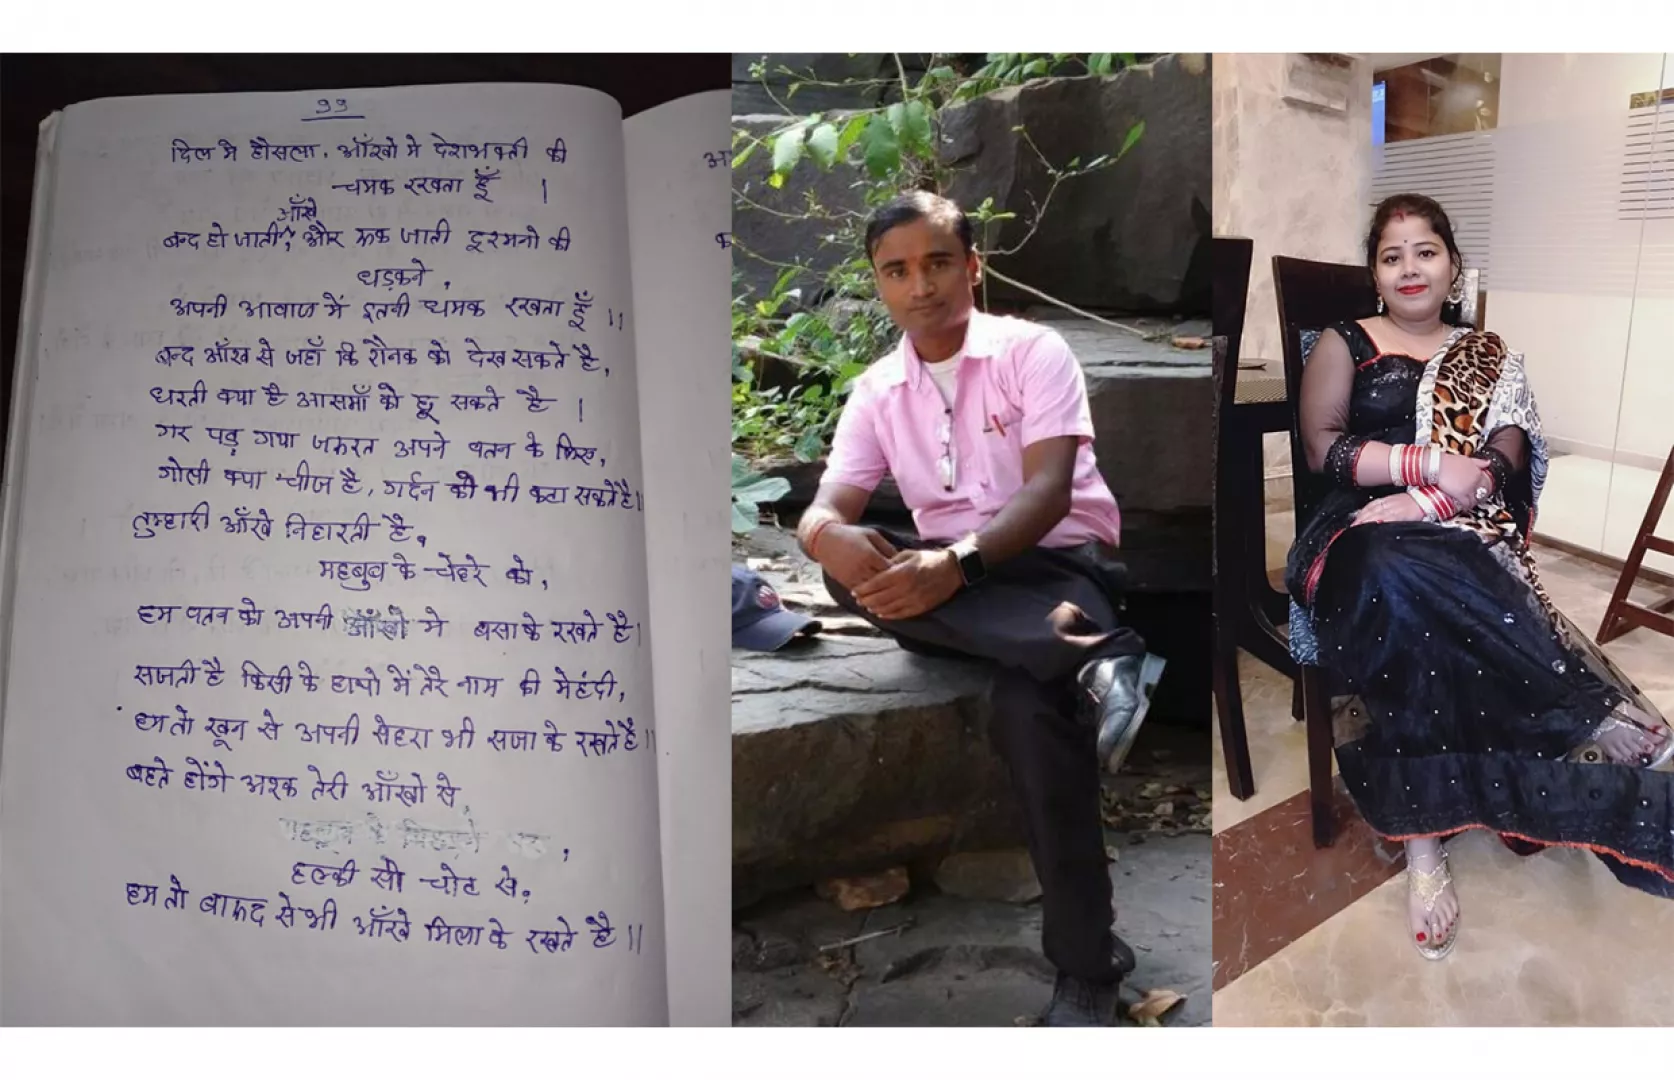 ११
दिल मे हौसला, आँखो मे देशभक्ती की
चमक रखता हूँ ।
आँखे
बन्द हो जाती, और रूक जाती दुश्मनो की
धड़कने,
अपनी आवाज में इतनी धमक रखता हूँ ।।
बन्द आँख से जहाँ कि रौनक को देख सकते है,
धरती क्या है आसमाँ को छू सकते है ।
गर पड़ गया जरूरत अपने वतन के लिए,
गोली क्या चीज है, गर्दन को भी कटा सकते है।।
तुम्हारी आँखे निहारती है,
महबुब के चेहरे को,
हम वतन को अपनी आँखो मे बसा के रखते है।
सजती है किसी के हाथो में तेरे नाम की मेहंदी,
हम तो खून से अपनी सेहरा भी सजा के रखते है।।
बहते होंगे अश्क तेरी आँखो से,
हल्की सी चोट से,
हम तो बारूद से भी आँखे मिला के रखते है।।